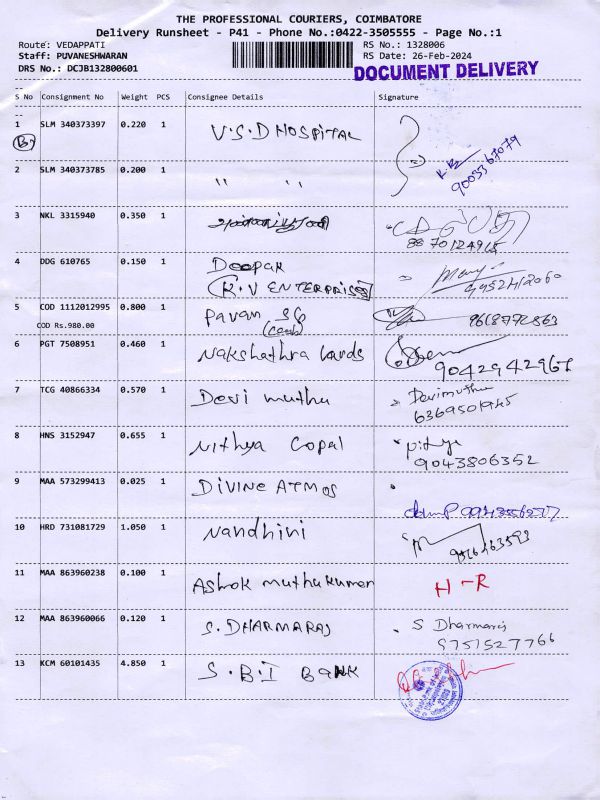 THE PROFESSIONAL COURIERS, COIMBATORE
Delivery Runsheet - P41 - Phone No.:0422-3505555 - Page No.:1
Route: VEDAPPATI RS No.: 1328006
Staff: PUVANESHWARAN RS Date: 26-Feb-2024
DRS No.: DCJB132800601 DOCUMENT DELIVERY
S No Consignment No Weight PCS Consignee Details Signature
1 SLM 340373397 0.220 1 V.S.D HOSPITAL
2 SLM 340373785 0.200 1 " "
3 NKL 3315940 0.350 1
4 DDG 610765 0.150 1 Deepak
(K.V ENTERPRISES)
5 COD 1112012995 0.800 1 Pavan SG
COD Rs.980.00 (cash)
6 PGT 7508951 0.460 1 Nakshathra Lands
9042942967
7 TCG 40866334 0.570 1 Devi muthu Devimuthu
6369501945
8 HNS 3152947 0.655 1 Nithya Gopal
9043806352
9 MAA 573299413 0.025 1 DIVINE ATMOS
10 HRD 731081729 1.050 1 Nandhini
11 MAA 863960238 0.100 1 Ashok muthukumar H-R
12 MAA 863960066 0.120 1 S. DHARMARAJ S Dharmaraj
9751527766
13 KCM 60101435 4.850 1 S.B.I BANK